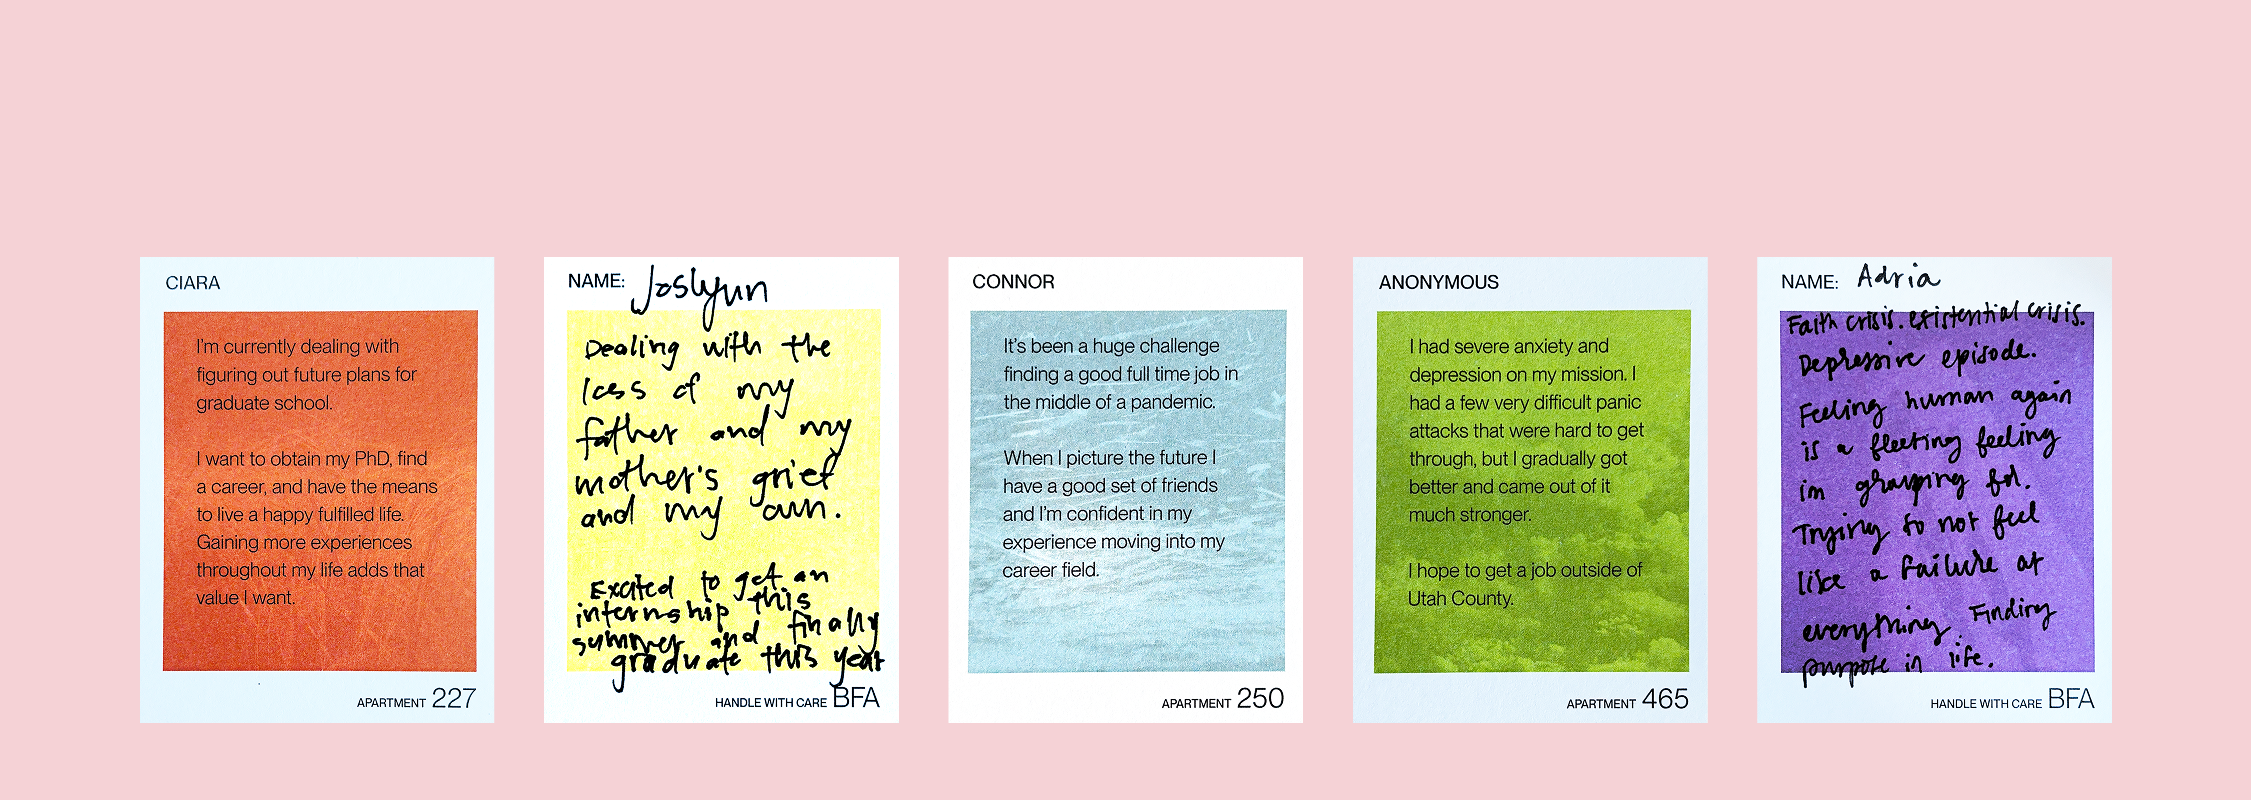 CIARA
I'm currently dealing with
figuring out future plans for
graduate school.
I want to obtain my PhD, find
a career, and have the means
to live a happy fulfilled life.
Gaining more experiences
throughout my life adds that
value I want.
APARTMENT 227
NAME: Joslyun
Dealing with the
loss of my
father and my
mother's grief
and my own.
Excited to get an
internship this
summer and finally
graduate this year
HANDLE WITH CARE BFA
CONNOR
It's been a huge challenge
finding a good full time job in
the middle of a pandemic.
When I picture the future I
have a good set of friends
and I'm confident in my
experience moving into my
career field.
APARTMENT 250
ANONYMOUS
I had severe anxiety and
depression on my mission. I
had a few very difficult panic
attacks that were hard to get
through, but I gradually got
better and came out of it
much stronger.
I hope to get a job outside of
Utah County.
APARTMENT 465
NAME: Adria
Faith crisis. existential crisis.
Depressive episode.
Feeling human again
is a fleeting feeling
im grasping for.
Trying to not feel
like a failure at
everything. Finding
purpose in life.
HANDLE WITH CARE BFA